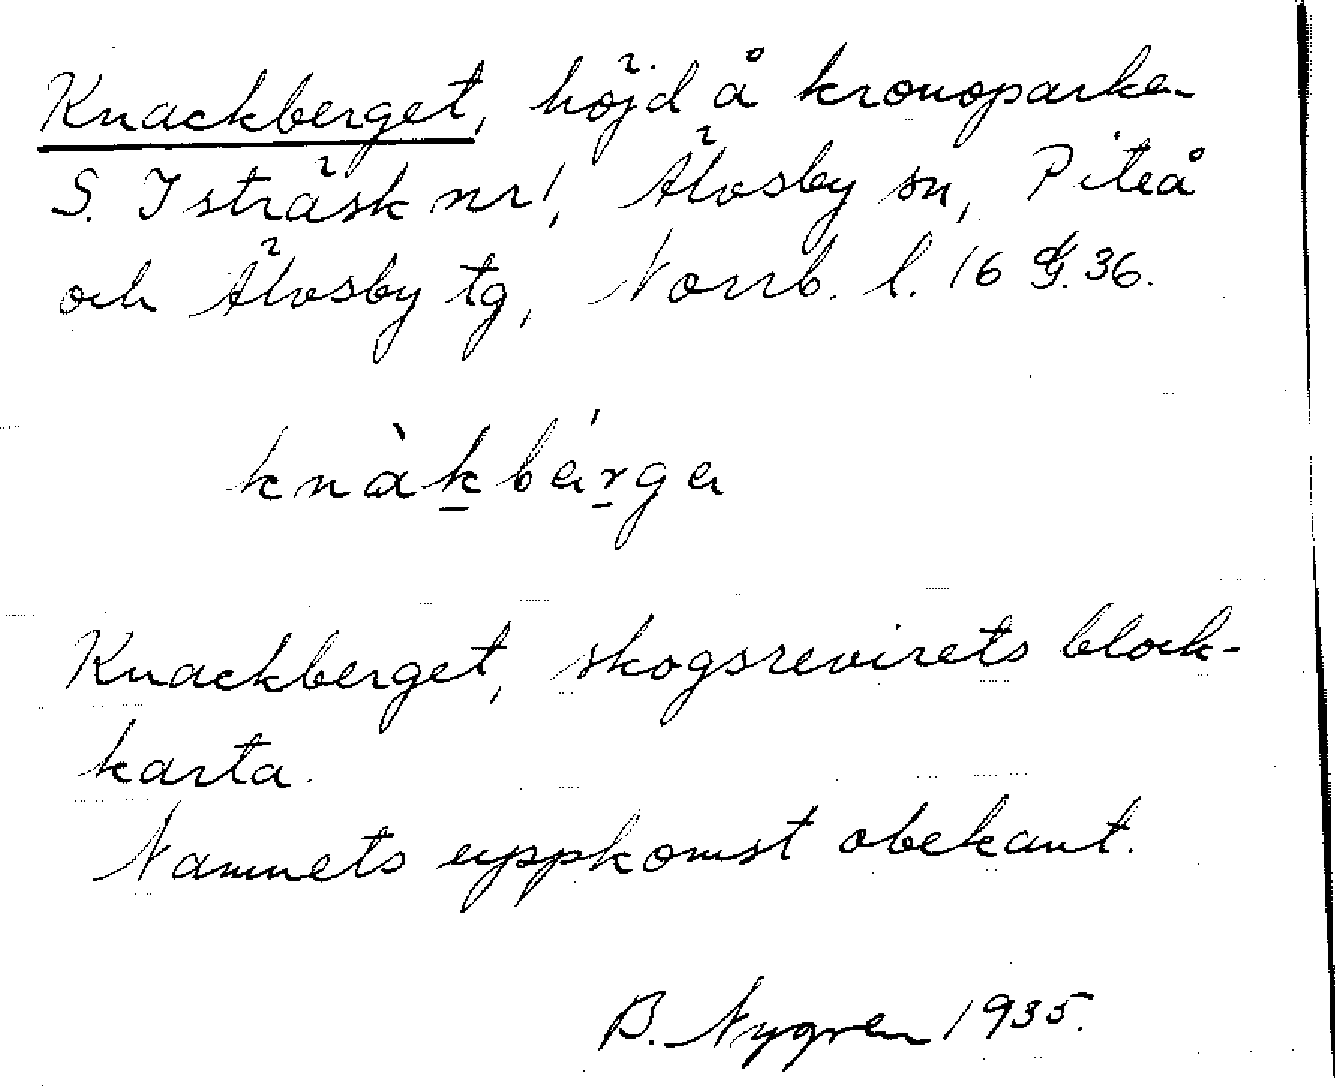 Knackberget, höjd å kronoparken
S. Isträsk nr 1, Älvsby sn, Piteå
och Älvsby tg, Norrb. l. 16 G. 36.
knàkbárga
Knackberget, skogsrevirets block-
karta.
Namnets uppkomst obekant.
B. Nygren 1935.